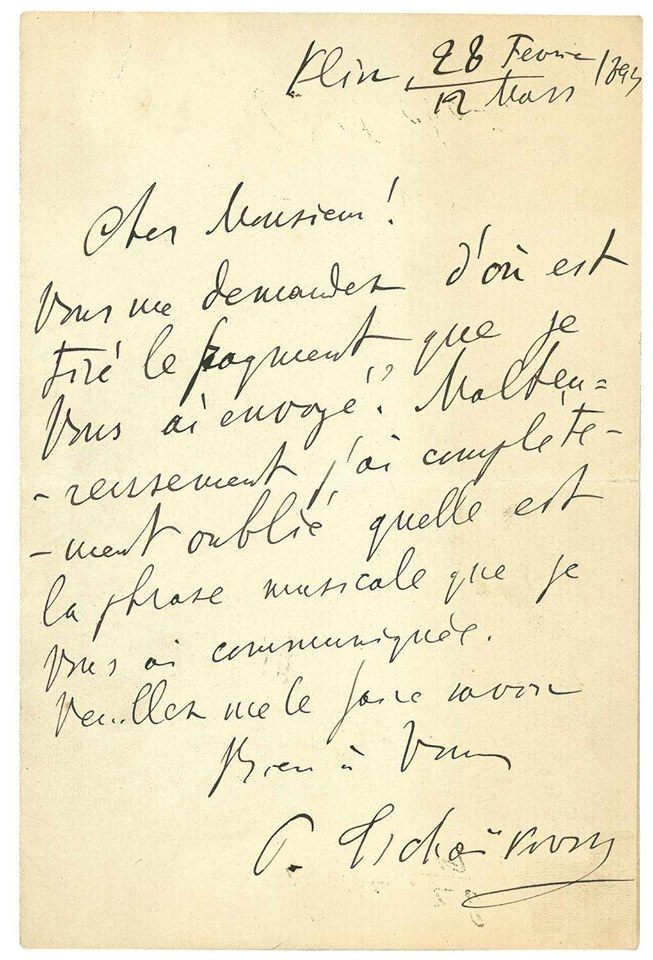 Klin, 28 Fevrier
12 Mars
Cher Monsieur!
Vous me demandez d'où est
tiré le fragment que je
Vous ai envoyé? Malheu=
-reusement j'ai complète-
-ment oublié quelle est
la phrase musicale que je
Vous ai communiquée.
Veuillez me le faire savoir
Bien à Vous
P. Tschaïkovsky